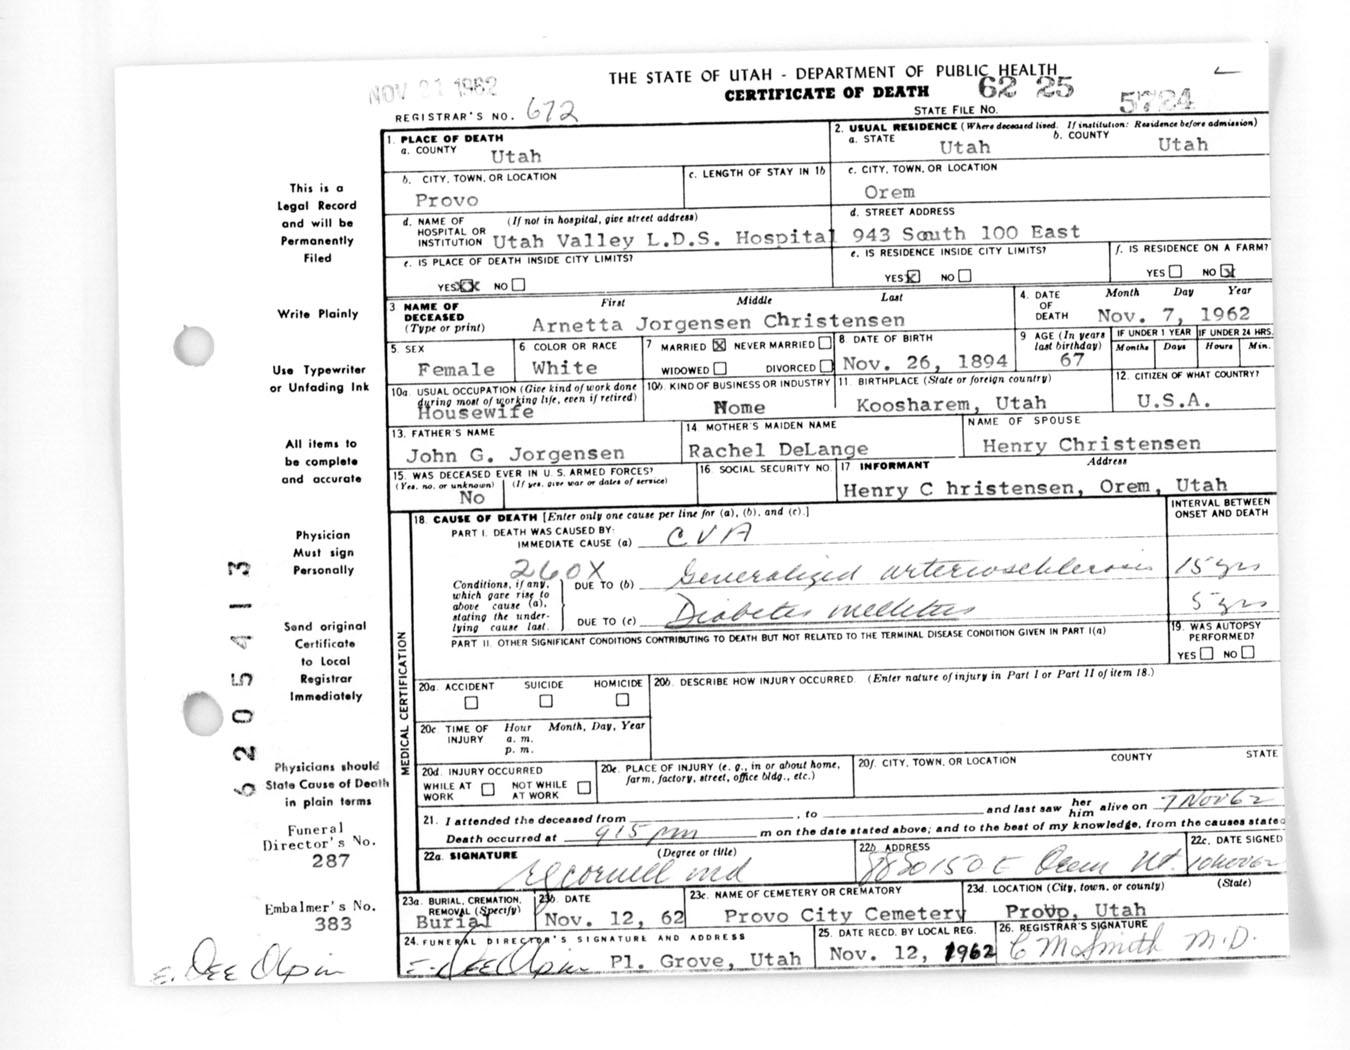 NOV 21 1962
THE STATE OF UTAH - DEPARTMENT OF PUBLIC HEALTH
CERTIFICATE OF DEATH
62 25
5724
REGISTRAR'S NO. 672
STATE FILE NO.
1. PLACE OF DEATH
a. COUNTY Utah
2. USUAL RESIDENCE (Where deceased lived. If institution: Residence before admission)
a. STATE Utah b. COUNTY Utah
b. CITY, TOWN, OR LOCATION Provo
c. LENGTH OF STAY IN 1b
c. CITY, TOWN, OR LOCATION Orem
d. NAME OF HOSPITAL OR INSTITUTION (If not in hospital, give street address) Utah Valley L.D.S. Hospital
d. STREET ADDRESS 943 South 100 East
e. IS PLACE OF DEATH INSIDE CITY LIMITS?
YES NO
e. IS RESIDENCE INSIDE CITY LIMITS?
YES NO
f. IS RESIDENCE ON A FARM?
YES NO
3 NAME OF DECEASED (Type or print) First Middle Last
Arnetta Jorgensen Christensen
4. DATE OF DEATH Month Day Year
Nov. 7, 1962
5. SEX Female
6. COLOR OR RACE White
7 MARRIED NEVER MARRIED
WIDOWED DIVORCED
8 DATE OF BIRTH Nov. 26, 1894
9 AGE (In years last birthday) 67
IF UNDER 1 YEAR Months Days
IF UNDER 24 HRS. Hours Min.
10a. USUAL OCCUPATION (Give kind of work done during most of working life, even if retired) Housewife
10b. KIND OF BUSINESS OR INDUSTRY Home
11. BIRTHPLACE (State or foreign country) Koosharem, Utah
12. CITIZEN OF WHAT COUNTRY? U.S.A.
13. FATHER'S NAME John G. Jorgensen
14 MOTHER'S MAIDEN NAME Rachel DeLange
NAME OF SPOUSE Henry Christensen
15. WAS DECEASED EVER IN U. S. ARMED FORCES?
(Yes, no, or unknown) (If yes, give war or dates of service)
No
16 SOCIAL SECURITY NO.
17 INFORMANT Address
Henry C hristensen, Orem, Utah
18. CAUSE OF DEATH [Enter only one cause per line for (a), (b), and (c).]
INTERVAL BETWEEN ONSET AND DEATH
PART I. DEATH WAS CAUSED BY:
IMMEDIATE CAUSE (a) CVA
260X
Conditions, if any, which gave rise to above cause (a), stating the underlying cause last.
DUE TO (b) Generalized arteriosclerosis 15 yrs
DUE TO (c) Diabetes mellitus 5 yrs
PART II. OTHER SIGNIFICANT CONDITIONS CONTRIBUTING TO DEATH BUT NOT RELATED TO THE TERMINAL DISEASE CONDITION GIVEN IN PART I(a)
19. WAS AUTOPSY PERFORMED?
YES NO
MEDICAL CERTIFICATION
20a. ACCIDENT SUICIDE HOMICIDE
20b. DESCRIBE HOW INJURY OCCURRED. (Enter nature of injury in Part I or Part II of item 18.)
20c TIME OF INJURY Hour a. m. p. m. Month, Day, Year
20d. INJURY OCCURRED
WHILE AT WORK NOT WHILE AT WORK
20e. PLACE OF INJURY (e. g., in or about home, farm, factory, street, office bldg., etc.)
20f. CITY, TOWN, OR LOCATION COUNTY STATE
21. I attended the deceased from , to and last saw her him alive on 7 Nov 62
Death occurred at 915 pm m on the date stated above; and to the best of my knowledge, from the causes stated
22a. SIGNATURE (Degree or title)
md
22b. ADDRESS
22c. DATE SIGNED
10 Nov 62
23a. BURIAL, CREMATION, REMOVAL (Specify) Burial
23b. DATE Nov. 12, 62
23c. NAME OF CEMETERY OR CREMATORY Provo City Cemetery
23d. LOCATION (City, town, or county) (State)
Provo, Utah
24. FUNERAL DIRECTOR'S SIGNATURE AND ADDRESS
E. Dee Olpin Pl. Grove, Utah
25. DATE RECD. BY LOCAL REG. Nov. 12, 1962
26. REGISTRAR'S SIGNATURE
C M Smith M.D.
This is a
Legal Record
and will be
Permanently
Filed
Write Plainly
Use Typewriter
or Unfading Ink
All items to
be complete
and accurate
Physician
Must sign
Personally
Send original
Certificate
to Local
Registrar
Immediately
Physicians should
State Cause of Death
in plain terms
Funeral
Director's No.
287
Embalmer's No.
383
E. Dee Olpin
6205413